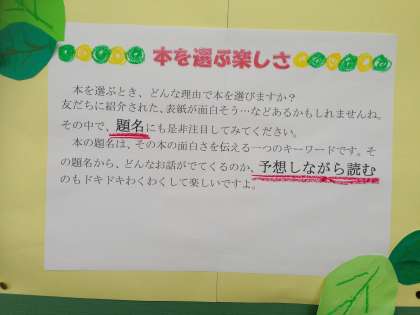 本を選ぶ楽しさ
本を選ぶとき、どんな理由で本を選びますか？
友だちに紹介された、表紙が面白そう…などあるかもしれませんね。
その中で、題名にも是非注目してみてください。
本の題名は、その本の面白さを伝える一つのキーワードです。そ
の題名から、どんなお話がでてくるのか、予想しながら読む
のもドキドキわくわくして楽しいですよ。